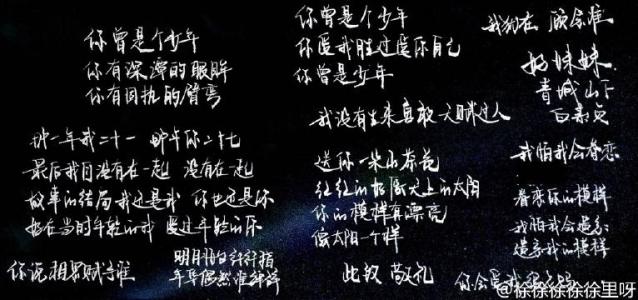 你曾是个少年
你有深潭的眼眸
你有固执的臂弯
那一年我二十一 那年你二十七
最后我们没有在一起 没有在一起
故事的结局我还是我 你也还是你
好在当时年轻的我 爱过年轻的你
你说相思赋予谁
你曾是个少年
你爱我胜过爱你自己
你曾是少年
我没有生来勇敢天赋过人
送你一朵山茶花
红红的好像天上的太阳
你的模样有漂亮
像太阳一个样
此致 敬礼
好妹妹
青城山下
白素贞
我怕我会眷恋
眷恋你的模样
我怕我会遗忘
遗忘我的模样
你会爱我
@徐徐徐徐徐里呀